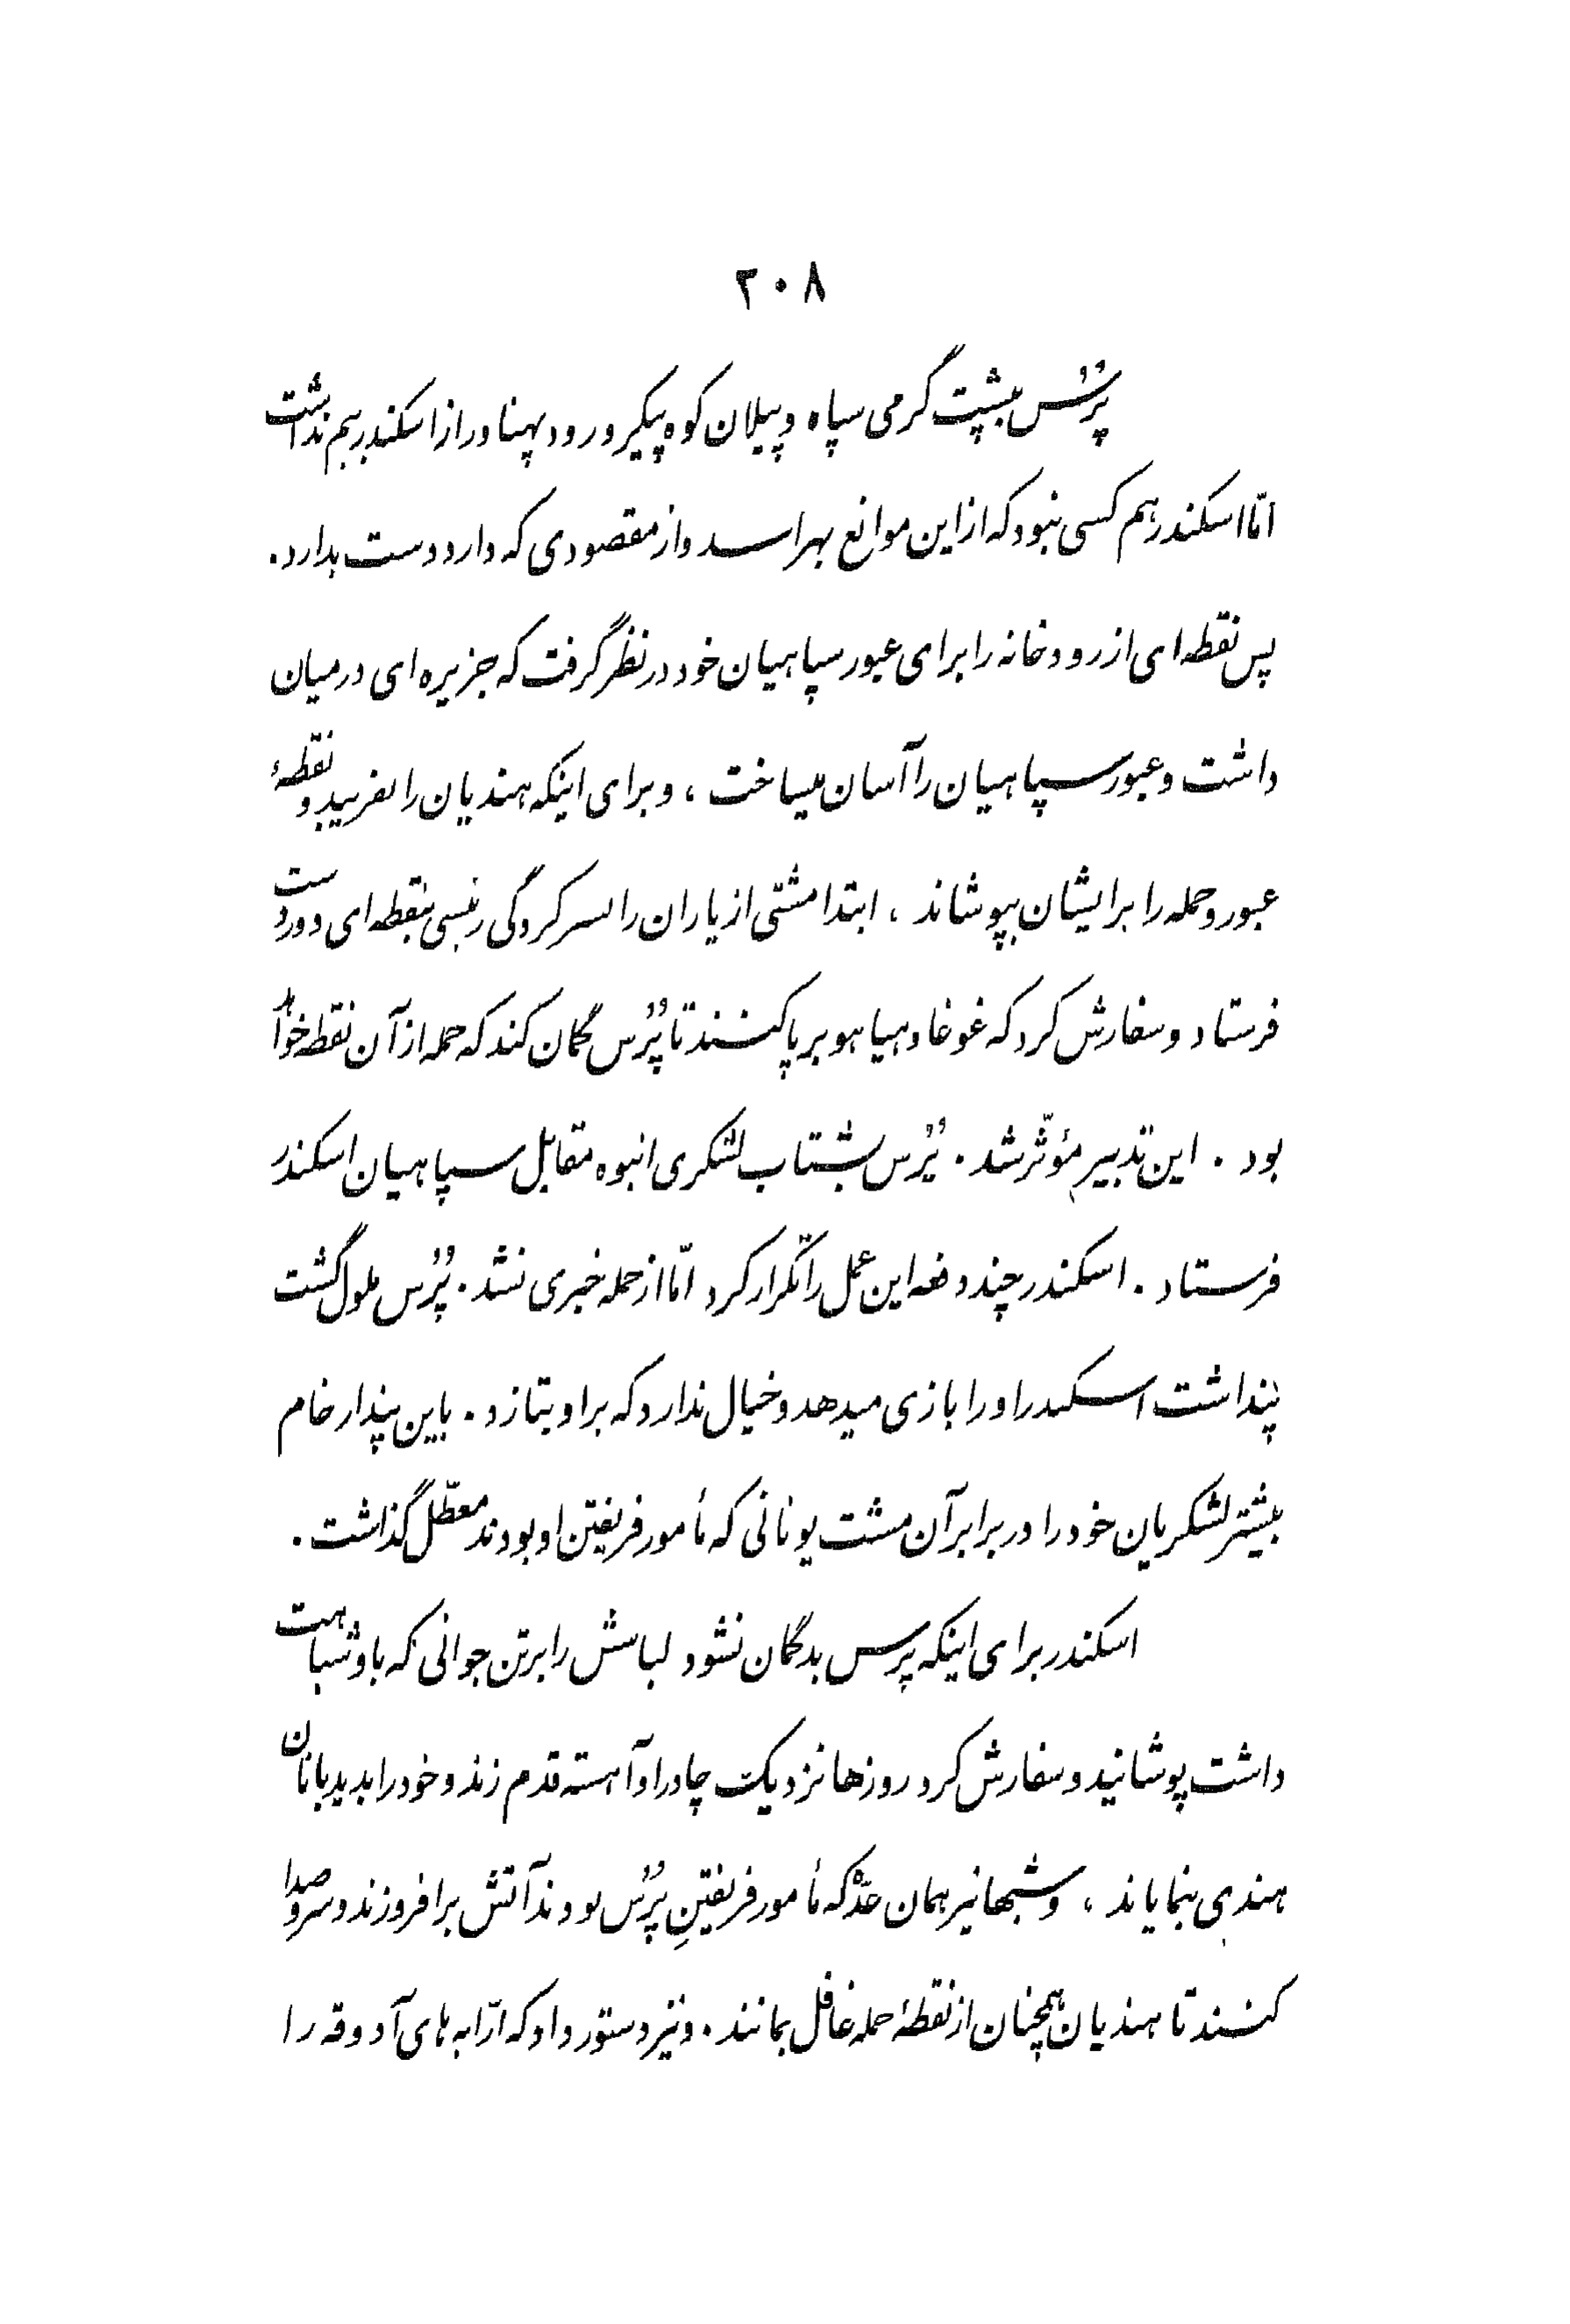 ۲۰۸
پُرُس بپشت گرمی سپاه و پیلان کوه پیکر و رود پهناور از اسکندر بیم نداشت
امّا اسکندر هم کسی نبود که از این موانع بهراسد و از مقصودی که دارد دست بدارد.
پس نقطه ای از رودخانه را برای عبور سپاهیان خود در نظر گرفت که جزیره ای در میان
داشت و عبور سپاهیان را آسان میساخت ، و برای اینکه هندیان را بفریبد و نقطهٔ
عبور و حمله را برایشان بپوشاند ، ابتدا مشتی از یاران را بسر کردگی رئیسی بنقطه ای دوردست
فرستاد و سفارش کرد که غوغا و هیاهو بر پا کنند تا پُرُس گمان کند که حمله از آن نقطه خواهد
بود . این تدبیر مؤثّر شد . پُرُس بشتاب لشکری انبوه مقابل سپاهیان اسکندر
فرستاد . اسکندر چند دفعه این عمل را تکرار کرد امّا از حمله خبری نشد . پُرُس ملول گشت
پنداشت اسکندر او را بازی میدهد و خیال ندارد که بر او بتازد . باین پندار خام
بیشتر لشکریان خود را در برابر آن مشت یونانی که مأمور فریفتن او بودند معطّل گذاشت .
اسکندر برای اینکه پرس بدگمان نشود لباسش را بر تن جوانی که باو شباهت
داشت پوشانید و سفارش کرد روزها نزدیک چادر او آهسته قدم زند و خود را بدیدبانان
هندی بنمایاند ، و شبها نیز همان عدّه که مأمور فریفتنِ پُرُس بودند آتش برافروزند و سر و صدا
کنند تا هندیان همچنان از نقطهٔ حمله غافل بمانند . و نیز دستور داد که ارّابه های آذوقه را